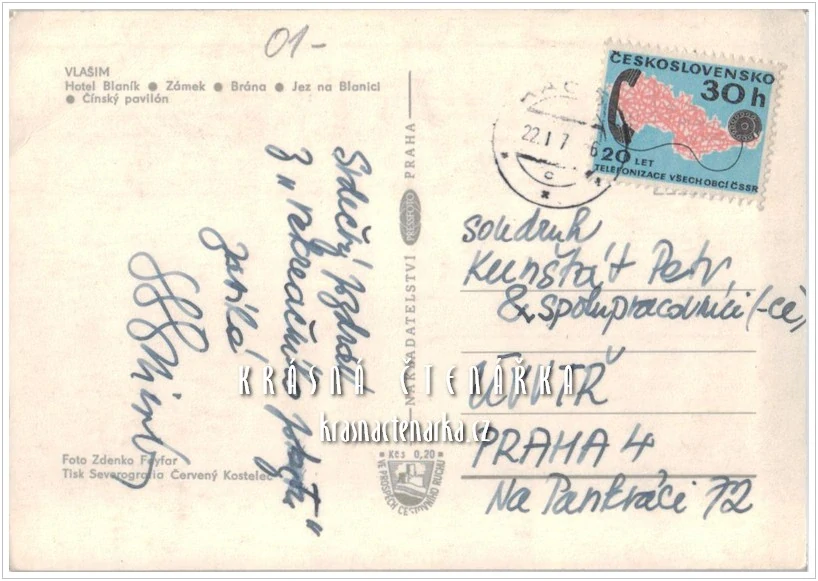 01-
VLAŠIM
Hotel Blaník ● Zámek ● Brána ● Jez na Blanici
● Čínský pavilón
ČESKOSLOVENSKO
30h
20 LET
TELEFONIZACE VŠECH OBCÍ ČSSR
22.I.7
Srdečný pozdrav
z „rekreačního pobytu“
NAKLADATELSTVÍ PRESSFOTO PRAHA
soudruh
Kunštát Petr
& spolupracovníci (-ce)
ÚVVTŘ
PRAHA 4
Na Pankráci 72
KRÁSNÁ ČTENÁŘKA
krasnactenarka.cz
Kčs 0,20
VE PROSPĚCH CESTOVNÍHO RUCHU
Foto Zdenko Feyfar
Tisk Severografia Červený Kostelec